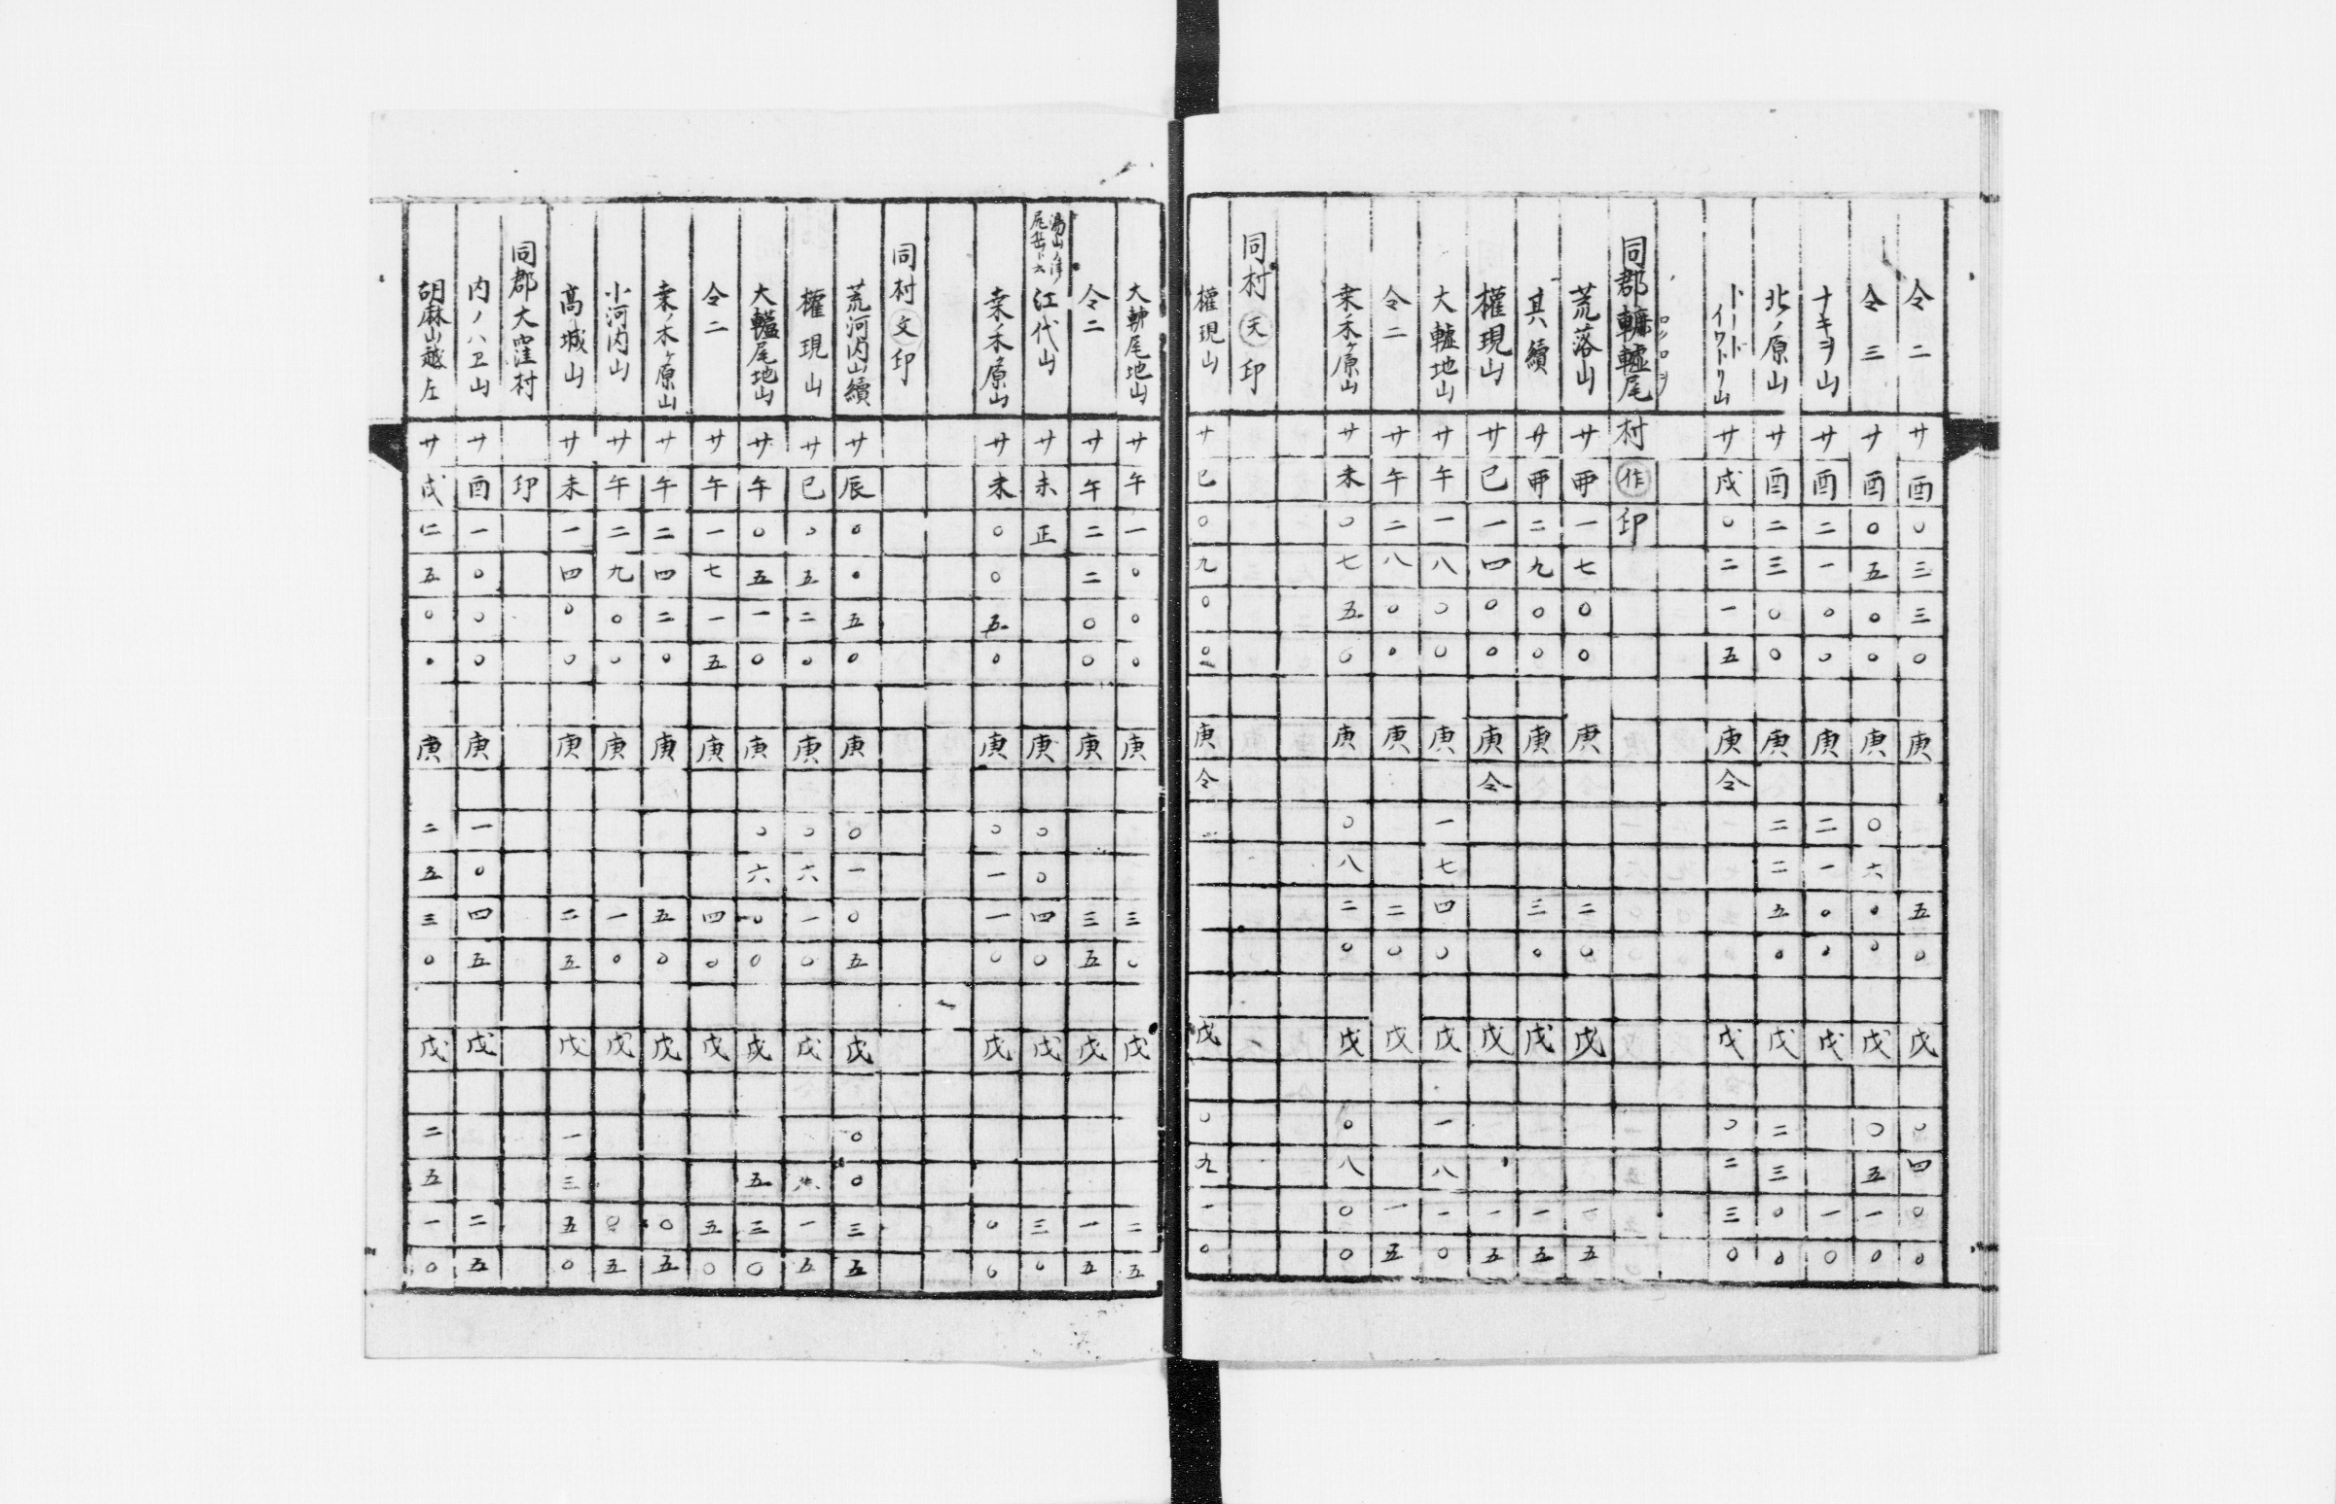 令二 サ酉〇三三〇 庚 五〇 戊 〇四〇〇
令三 サ酉〇五〇〇 庚 〇六〇〇 戊 〇五一〇
ナキヲ山 サ酉二一〇〇 庚 二一〇〇 戊 一〇
北ノ原山 サ酉二三〇〇 庚 二二五〇 戊 二三〇〇
トヽロトイワトリ山 サ戌〇二一五 庚令 戊 〇二三〇
同郡轆轤尾村 作 印
荒落山 サ一七〇〇 庚 二〇 戊 一五
其續 サ二九〇〇 庚 三〇 戊 一五
權現山 サ巳一四〇〇 庚令 戊 一五
大轤地山 サ午一八〇〇 庚 一七四〇 戊 一八一〇
令二 サ午二八〇〇 庚 二〇 戊 一五
桒ノ木ヶ原山 サ未〇七五〇 庚 〇八二〇 戊 〇八〇〇
同村 天 印
權現山 サ巳〇九〇〇 庚令 戊 〇九一〇
大轤尾地山 サ午一〇〇〇 庚 三〇 戊 二五
令二 サ午二二〇〇 庚 三五 戊 一五
江代山 サ未正 庚 〇〇四〇 戊 三〇
桒ノ木ヶ原山 サ未〇〇五〇 庚 〇一一〇 戊 〇〇
同村 文 印
荒河内山續 サ辰〇〇五〇 庚 〇一〇五 戊 〇〇三五
權現山 サ巳〇五二〇 庚 〇六一〇 戊 一五
大轤尾地山 サ午〇五一〇 庚 〇六〇〇 戊 五三〇
令二 サ午一七一五 庚 四〇 戊 五〇
桒ノ木ヶ原山 サ午二四二〇 庚 五〇 戊 〇五
小河内山 サ午二九〇〇 庚 一〇 戊 五
高城山 サ未一四〇〇 庚 二五 戊 一三五〇
同郡大窪村 印
内ノハヱ山 サ酉一〇〇〇 庚 一〇四五 戊 二五
胡麻山越左 サ戌二五〇〇 庚 二五三〇 戊 二五一〇